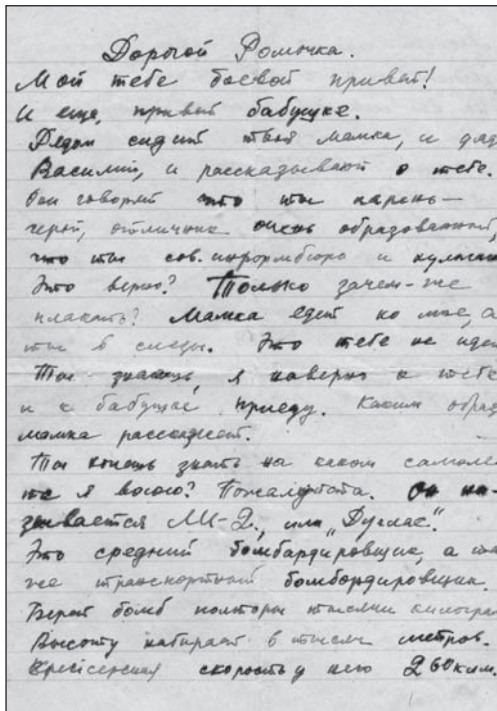 Дорогой Ромочка.
Мой тебе боевой привет!
И еще, привет бабушке.
Рядом сидит твоя мамка, и дяд
Василий, и рассказывают о тебе.
Они говорят что ты парень-
герой, отличник очень образованный,
что ты сов. информбюро и
Это верно? Только зачем-же
плакать? Мамка едет ко мне, а
ты в слезы. Это тебе не идет
Ты знаешь, я наверно к тебе
и к бабушке приеду. Каким образ
мамка расскажет.
Ты хочешь знать на каком самоле
те я воюю? Пожалуйста. Он на-
зывается ЛИ-2, или „Дуглас".
Это средний бомбардировщик, а так
же транспортный бомбордировщик.
Берет бомб полторы тысячи килограм
Высоту набирает 6 тысяч метров.
Крейсерская скорость у него 260 клм.